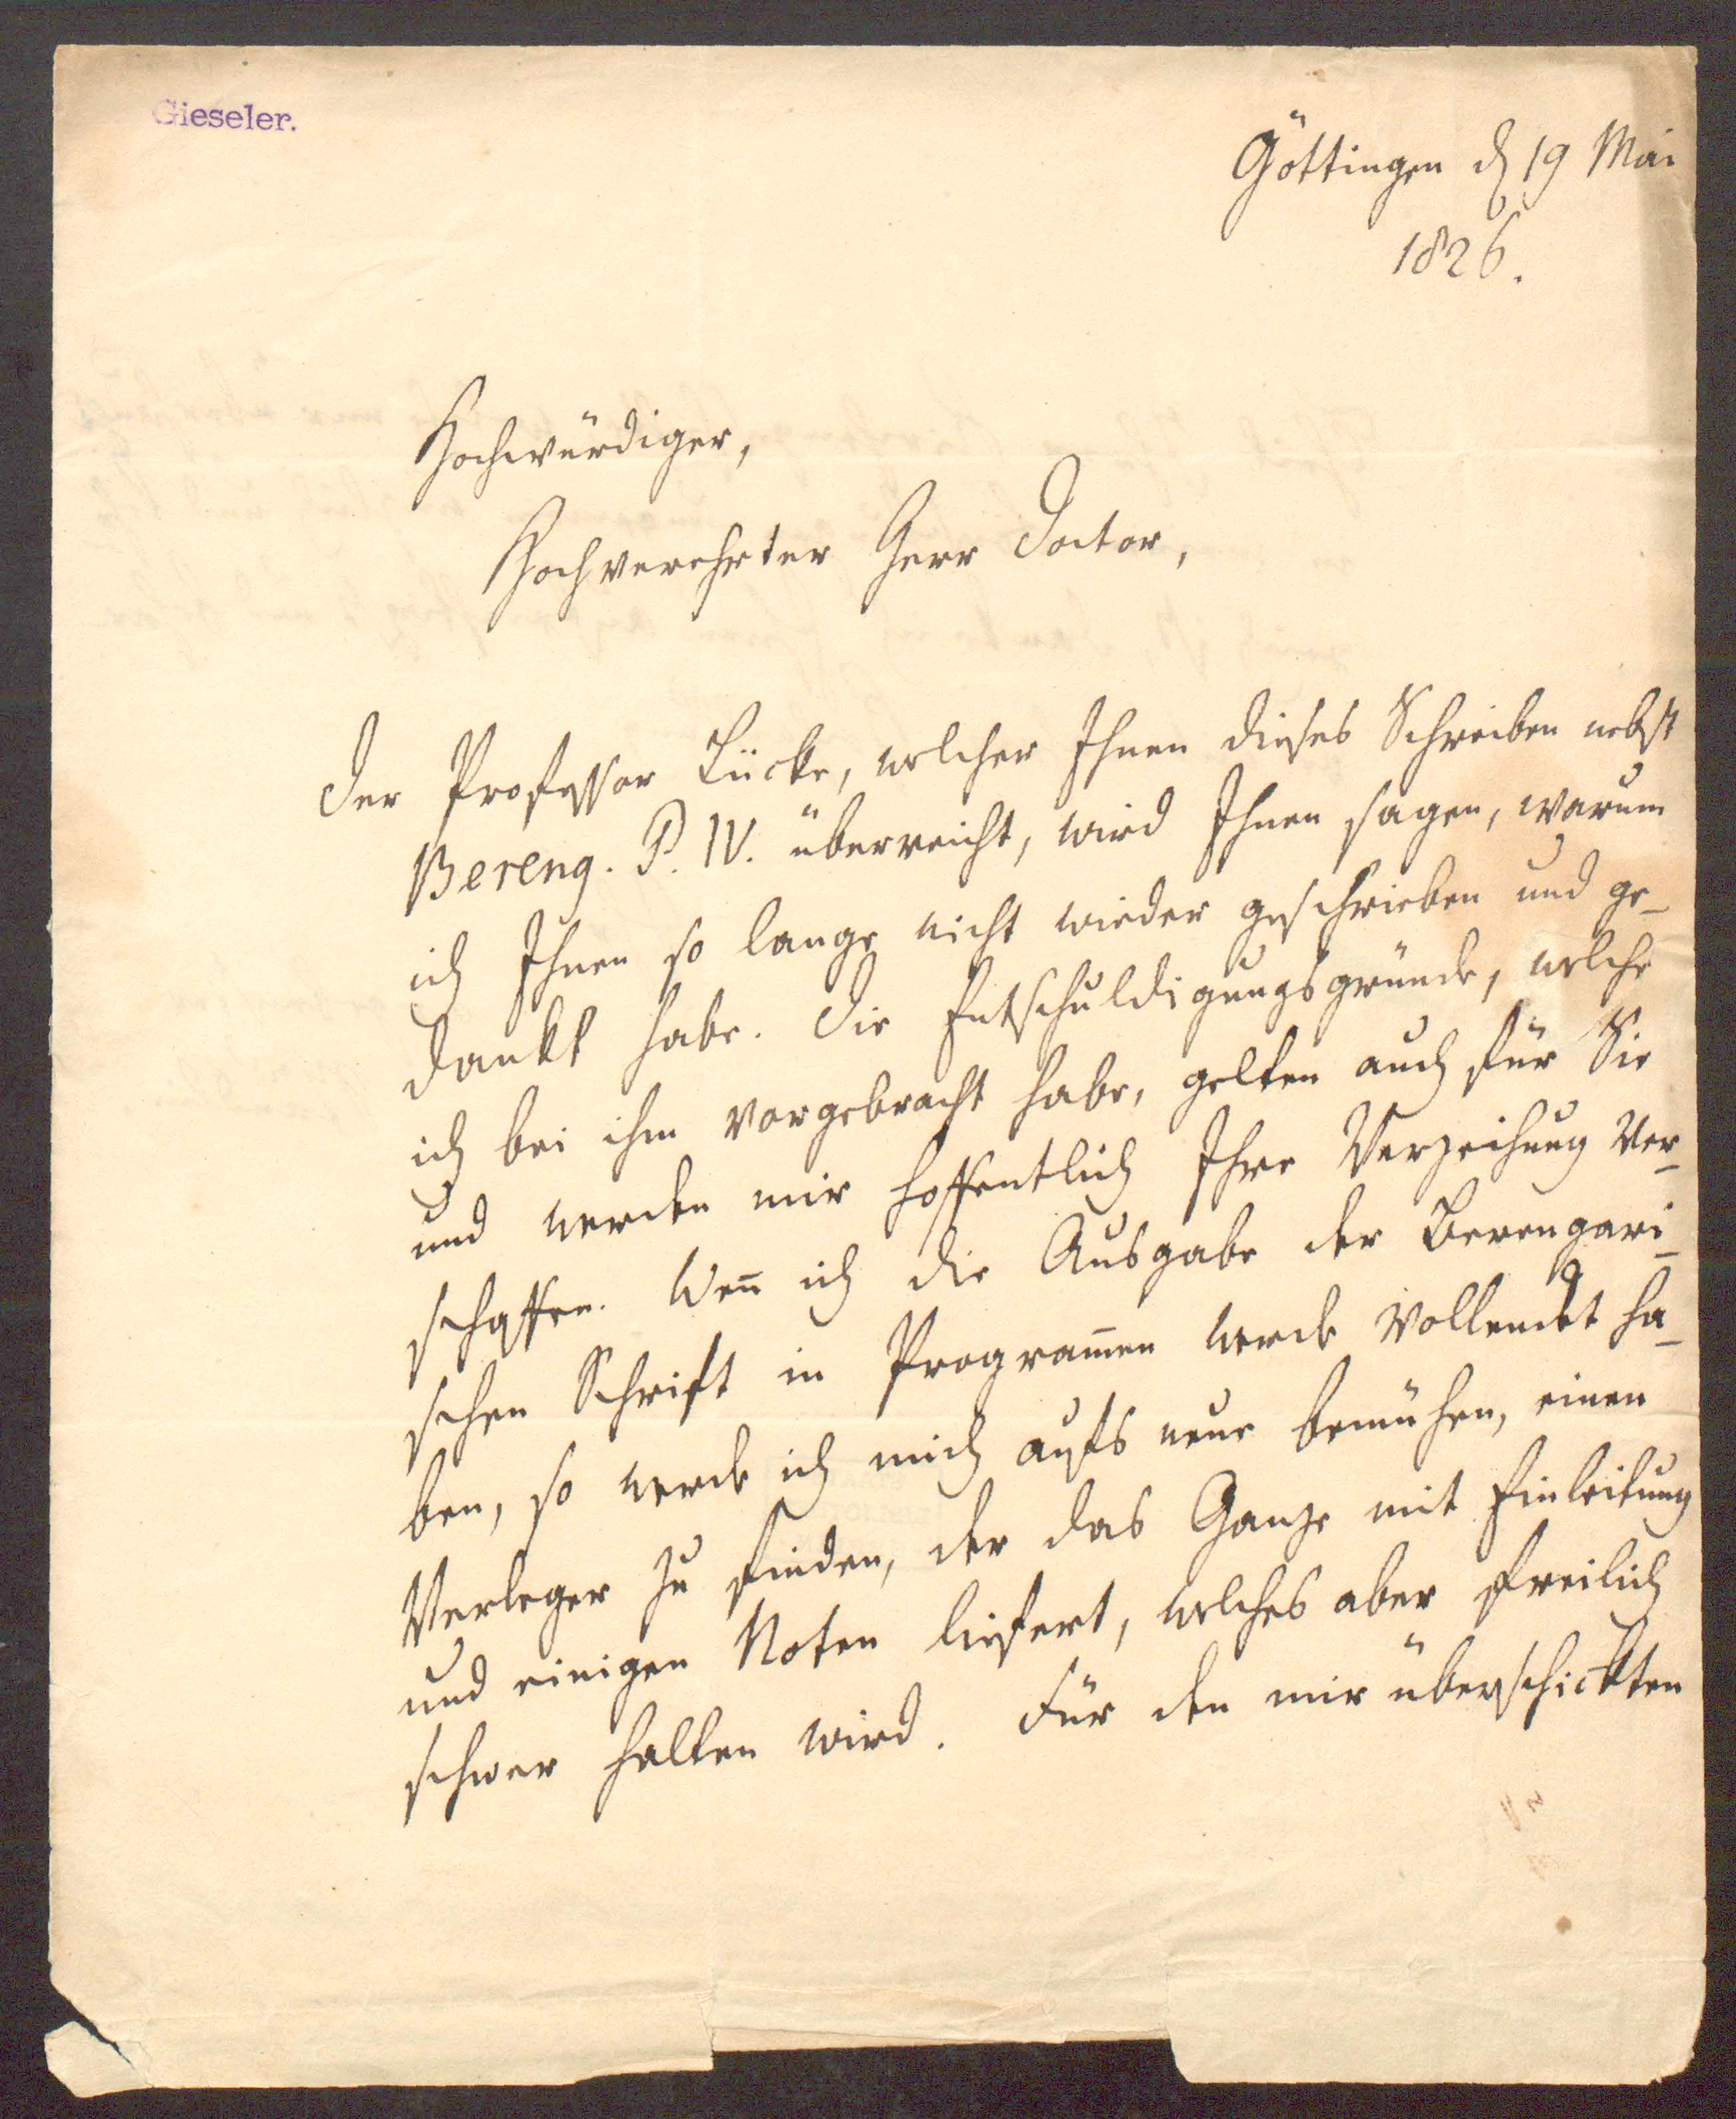 Gieseler.
Göttingen d 19 Mai
1826.
Hochwürdiger,
Hochverehrter Herr Doctor,
Der Professor Lücke, welcher Ihnen dieses Schreiben nebst
Bereng. P. IV. überreicht, wird Ihnen sagen, warum
ich Ihnen so lange nicht wieder geschrieben und ge-
dankt habe. Die Entschuldigungsgründe, welche
ich bei ihm vorgebracht habe, gelten auch für Sie
und werden mir hoffentlich Ihre Verzeihung ver-
schaffen. Weñ ich die Ausgabe der Berengari-
schen Schrift in Programen werde vollendet ha-
ben, so werde ich mich aufs neue bemühen, einen
Verleger zu finden, der das Ganze mit Einleitung
und einigen Noten liefert, welches aber freilich
schwer halten wird. Für den mir überschickten